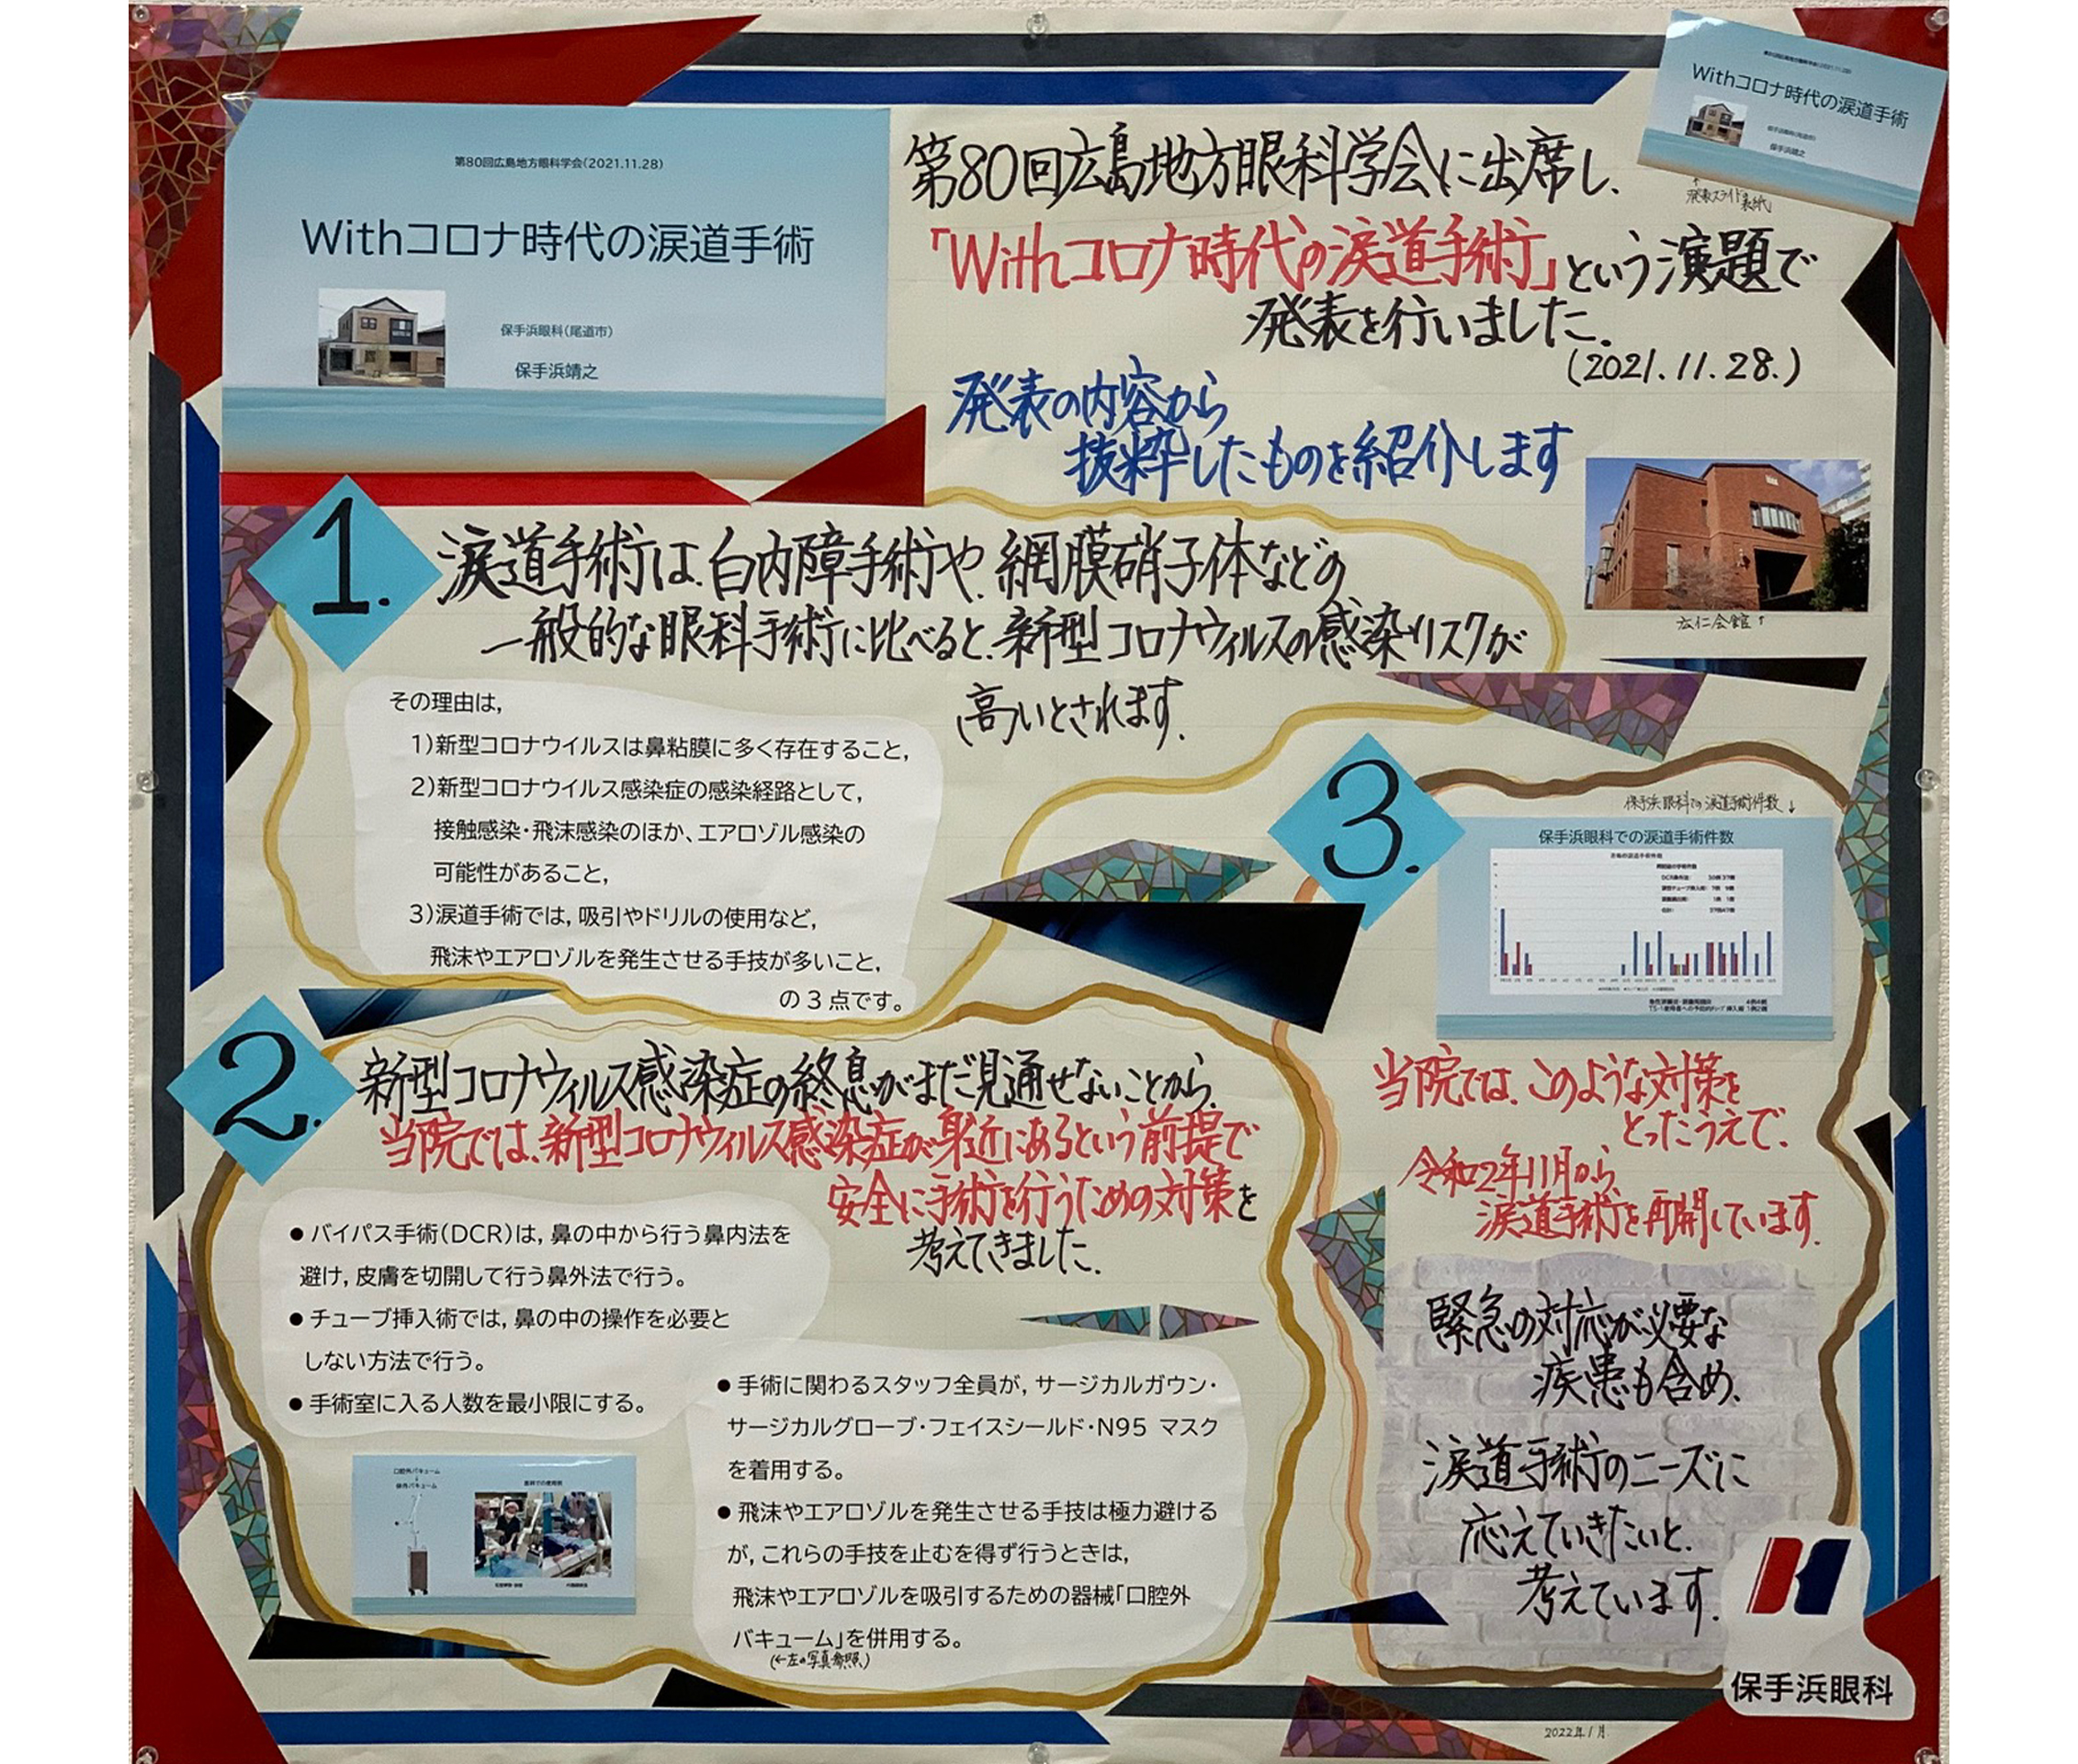 第80回広島地方眼科学会(2021.11.28)
Withコロナ時代の涙道手術
保手浜眼科(尾道市)
保手浜靖之
第80回広島地方眼科学会に出席し、
「Withコロナ時代の涙道手術」という演題で
発表を行いました。
(2021.11.28.)
第80回広島地方眼科学会(2021.11.28)
Withコロナ時代の涙道手術
保手浜眼科(尾道市)
保手浜靖之
↑
発表スライド表紙
発表の内容から
抜粋したものを紹介します
広仁会館↑
1.
涙道手術は、白内障手術や、網膜硝子体などの
一般的な眼科手術に比べると、新型コロナウィルスの感染リスクが
高いとされます.
その理由は,
1)新型コロナウイルスは鼻粘膜に多く存在すること,
2)新型コロナウイルス感染症の感染経路として,
接触感染・飛沫感染のほか、エアロゾル感染の
可能性があること,
3)涙道手術では, 吸引やドリルの使用など,
飛沫やエアロゾルを発生させる手技が多いこと,
の3点です。
2.
新型コロナウィルス感染症の終息がまだ見通せないことから、
当院では、新型コロナウィルス感染症が身近にあるという前提で
安全に手術を行うための対策を
考えてきました.
● バイパス手術(DCR)は, 鼻の中から行う鼻内法を
避け, 皮膚を切開して行う鼻外法で行う。
● チューブ挿入術では, 鼻の中の操作を必要と
しない方法で行う。
● 手術室に入る人数を最小限にする。
口腔外バキューム
● 手術に関わるスタッフ全員が, サージカルガウン・
サージカルグローブ・フェイスシールド・N95 マスク
を着用する。
● 飛沫やエアロゾルを発生させる手技は極力避ける
が, これらの手技を止むを得ず行うときは,
飛沫やエアロゾルを吸引するための器械「口腔外
バキューム」を併用する。
(←左の写真参照)
3.
保手浜眼科での涙道手術件数↓
保手浜眼科での涙道手術件数
当院では、このような対策を
とったうえで、
令和2年11月から
涙道手術を再開しています.
緊急の対応が必要な
疾患も含め、
涙道手術のニーズに
応えていきたいと、
考えています.
保手浜眼科
2022年1月